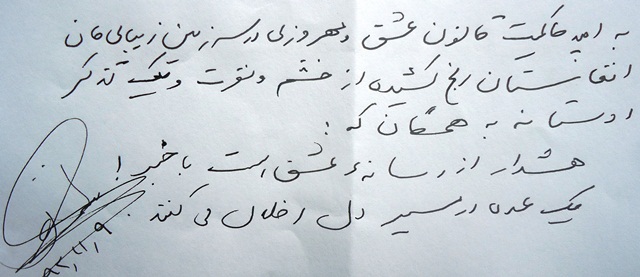 به امید حاکمیت قانون عشق و مهروزی در سرزمین زیبای مان
افغانستان رنج کشیده از خشم و نفرت و یک تذکر
دوستانه به همگان که :
هشدار از رسانهٔ عشق است با خبر !
یک عده در مسیر دل اخلال می کنند